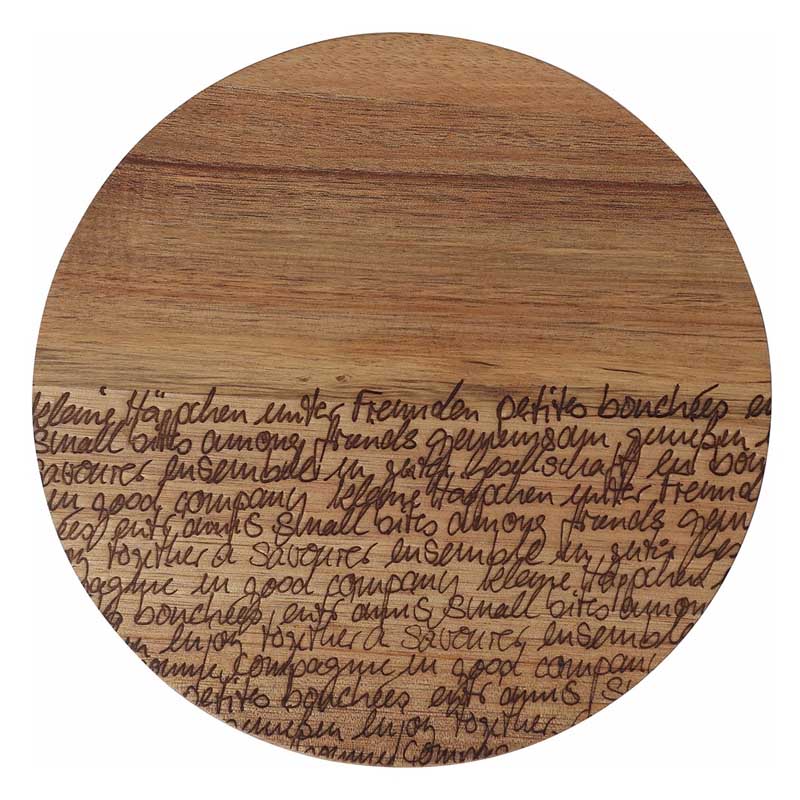 kleine Häppchen unter Freunden petites bouchées en
small bites among friends gemeinsam genießen
savourer ensemble in guter Gesellschaft en bon
in good company kleine Häppchen unter Freund
ées entr amis small bites among friends gem
together à savourer ensemble in guter Ges
pagnie in good company kleine Häppchen
bouchées entr amis small bites among
enjoy together à savourer ensemble
bonne compagnie in good compan
petites bouchées entr amis s
genießen enjoy together
bonne compag